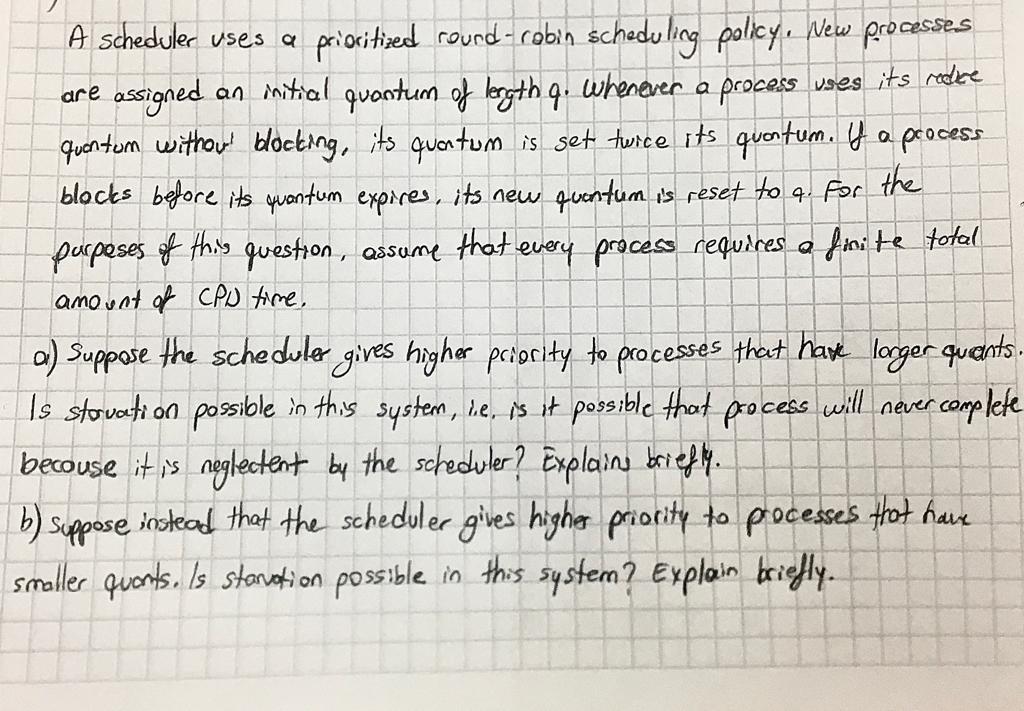 A scheduler uses a prioritized round-robin scheduling policy. New processes
are assigned an initial quantum of length q. Whenever a process uses its
quantum without blocking, its quantum is set twice its quantum. If a process
blocks before its quantum expires, its new quantum is reset to q. For the
purposes of this question, assume that every process requires a finite total
amount of CPU time.
a) Suppose the scheduler gives higher priority to processes that have larger quants.
Is starvation possible in this system, i.e. is it possible that process will never complete
becouse it is neglectent by the scheduler? Explains briefly.
b) Suppose instead that the scheduler gives higher priority to processes that have
smaller quants. Is starvation possible in this system? Explain briefly.